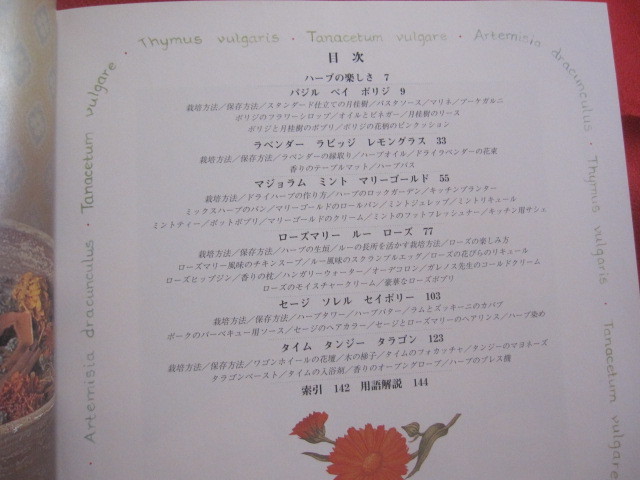 Thymus vulgaris · Tanacetum vulgare · Artemisia dracunculus · Thymus vulgaris · Tanacetum vulgare
Artemisia dracunculus · Tanacetum vulgare ·
目 次
ハーブの楽しき 7
バジル ベイ ボリジ 9
栽培方法/保存方法/スタンダード仕立ての月桂樹/パスタソース/マリネ/ブーケガルニ
ボリジのフラワーシロップ/オイルとビネガー/月桂樹のリース
ボリジと月桂樹のポプリ/ボリジの花柄のピンクッション
ラベンダー ラビッジ レモングラス 33
栽培方法/保存方法/ラベンダーの縁取り/ハーブオイル/ドライラベンダーの花束
香りのテーブルマット/ハーブバス
マジョラム ミント マリーゴールド 55
栽培方法/ドライハーブの作り方/ハーブのロックガーデン/キッチンプランター
ミックスハーブのパン/マリーゴールドのロールパン/ミントジュレップ/ミントリキュール
ミントティー/ポットポプリ/マリーゴールドのクリーム/ミントのフットフレッシュナー/キッチン用サシェ
ローズマリー ルー ローズ 77
栽培方法/保存方法/ハーブの生垣/ルーの長所を活かす栽培方法/ローズの楽しみ方
ローズマリー風味のチキンスープ/ルー風味のスクランブルエッグ/ローズの花びらのリキュール
ローズヒップジン/香りの枕/ハンガリーウォーター/オーデコロン/ガレノス先生のコールドクリーム
ローズのモイスチャークリーム/豪華なローズポプリ
セージ ソレル セイボリー 103
栽培方法/保存方法/ハーブタワー/ハーブバター/ラムとズッキーニのカバブ
ポークのバーベキュー用ソース/セージのヘアカラー/セージとローズマリーのヘアリンス/ハーブ染め
タイム タンジー タラゴン 123
栽培方法/保存方法/ワゴンホイールの花壇/木の梯子/タイムのフォカッチャ/タンジーのマヨネーズ
タラゴンペースト/タイムの入浴剤/香りのオーブングローブ/ハーブのプレス機
索引 142 用語解説 144